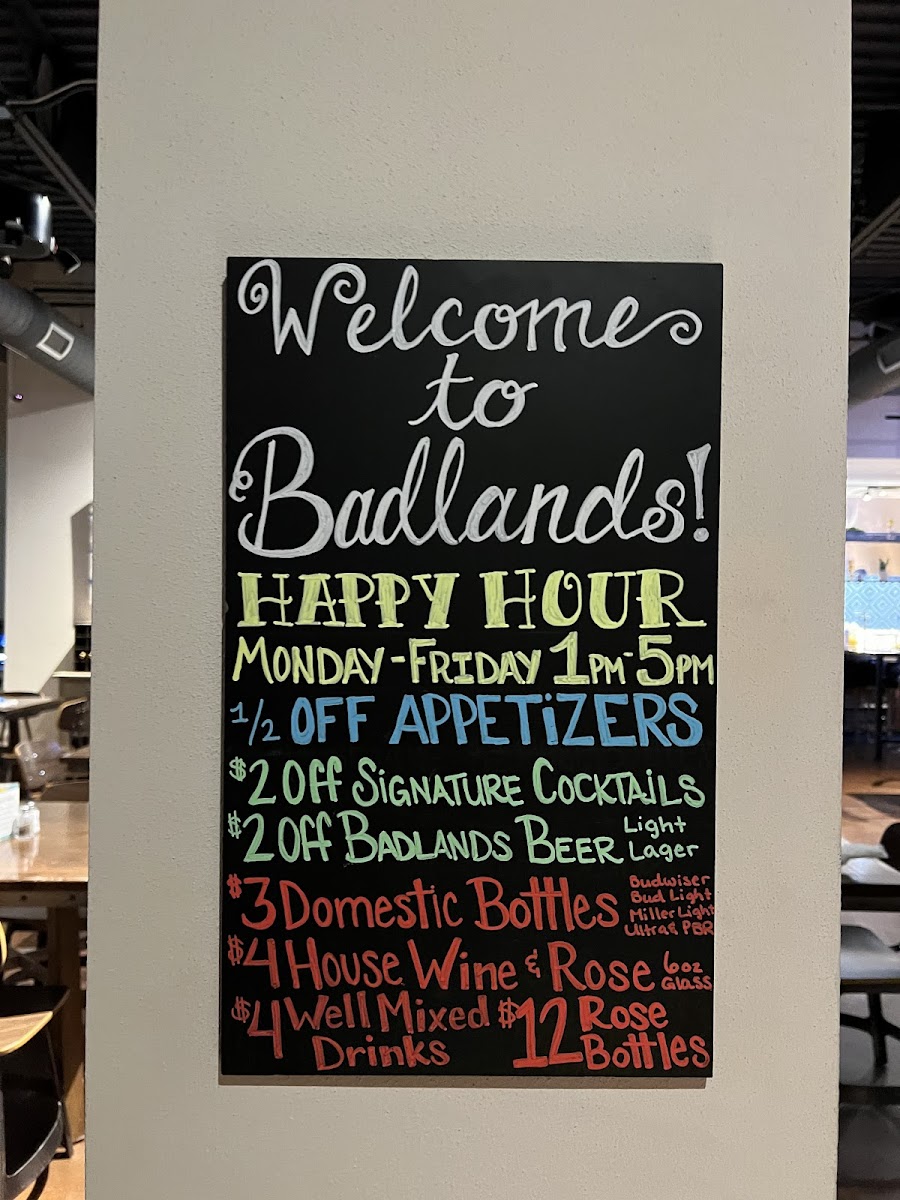 Welcome
to
Badlands!
HAPPY HOUR
MONDAY-FRIDAY 1PM-5PM
1/2 OFF APPETIZERS
$2 Off SIGNATURE COCKTAILS
$2 Off BADLANDS BEER Light Lager
$3 Domestic Bottles Budwiser Bud Light Miller Light Ultra & PBR
$4 House Wine & Rose 6oz GLASS
$4 Well Mixed Drinks $12 Rose Bottles